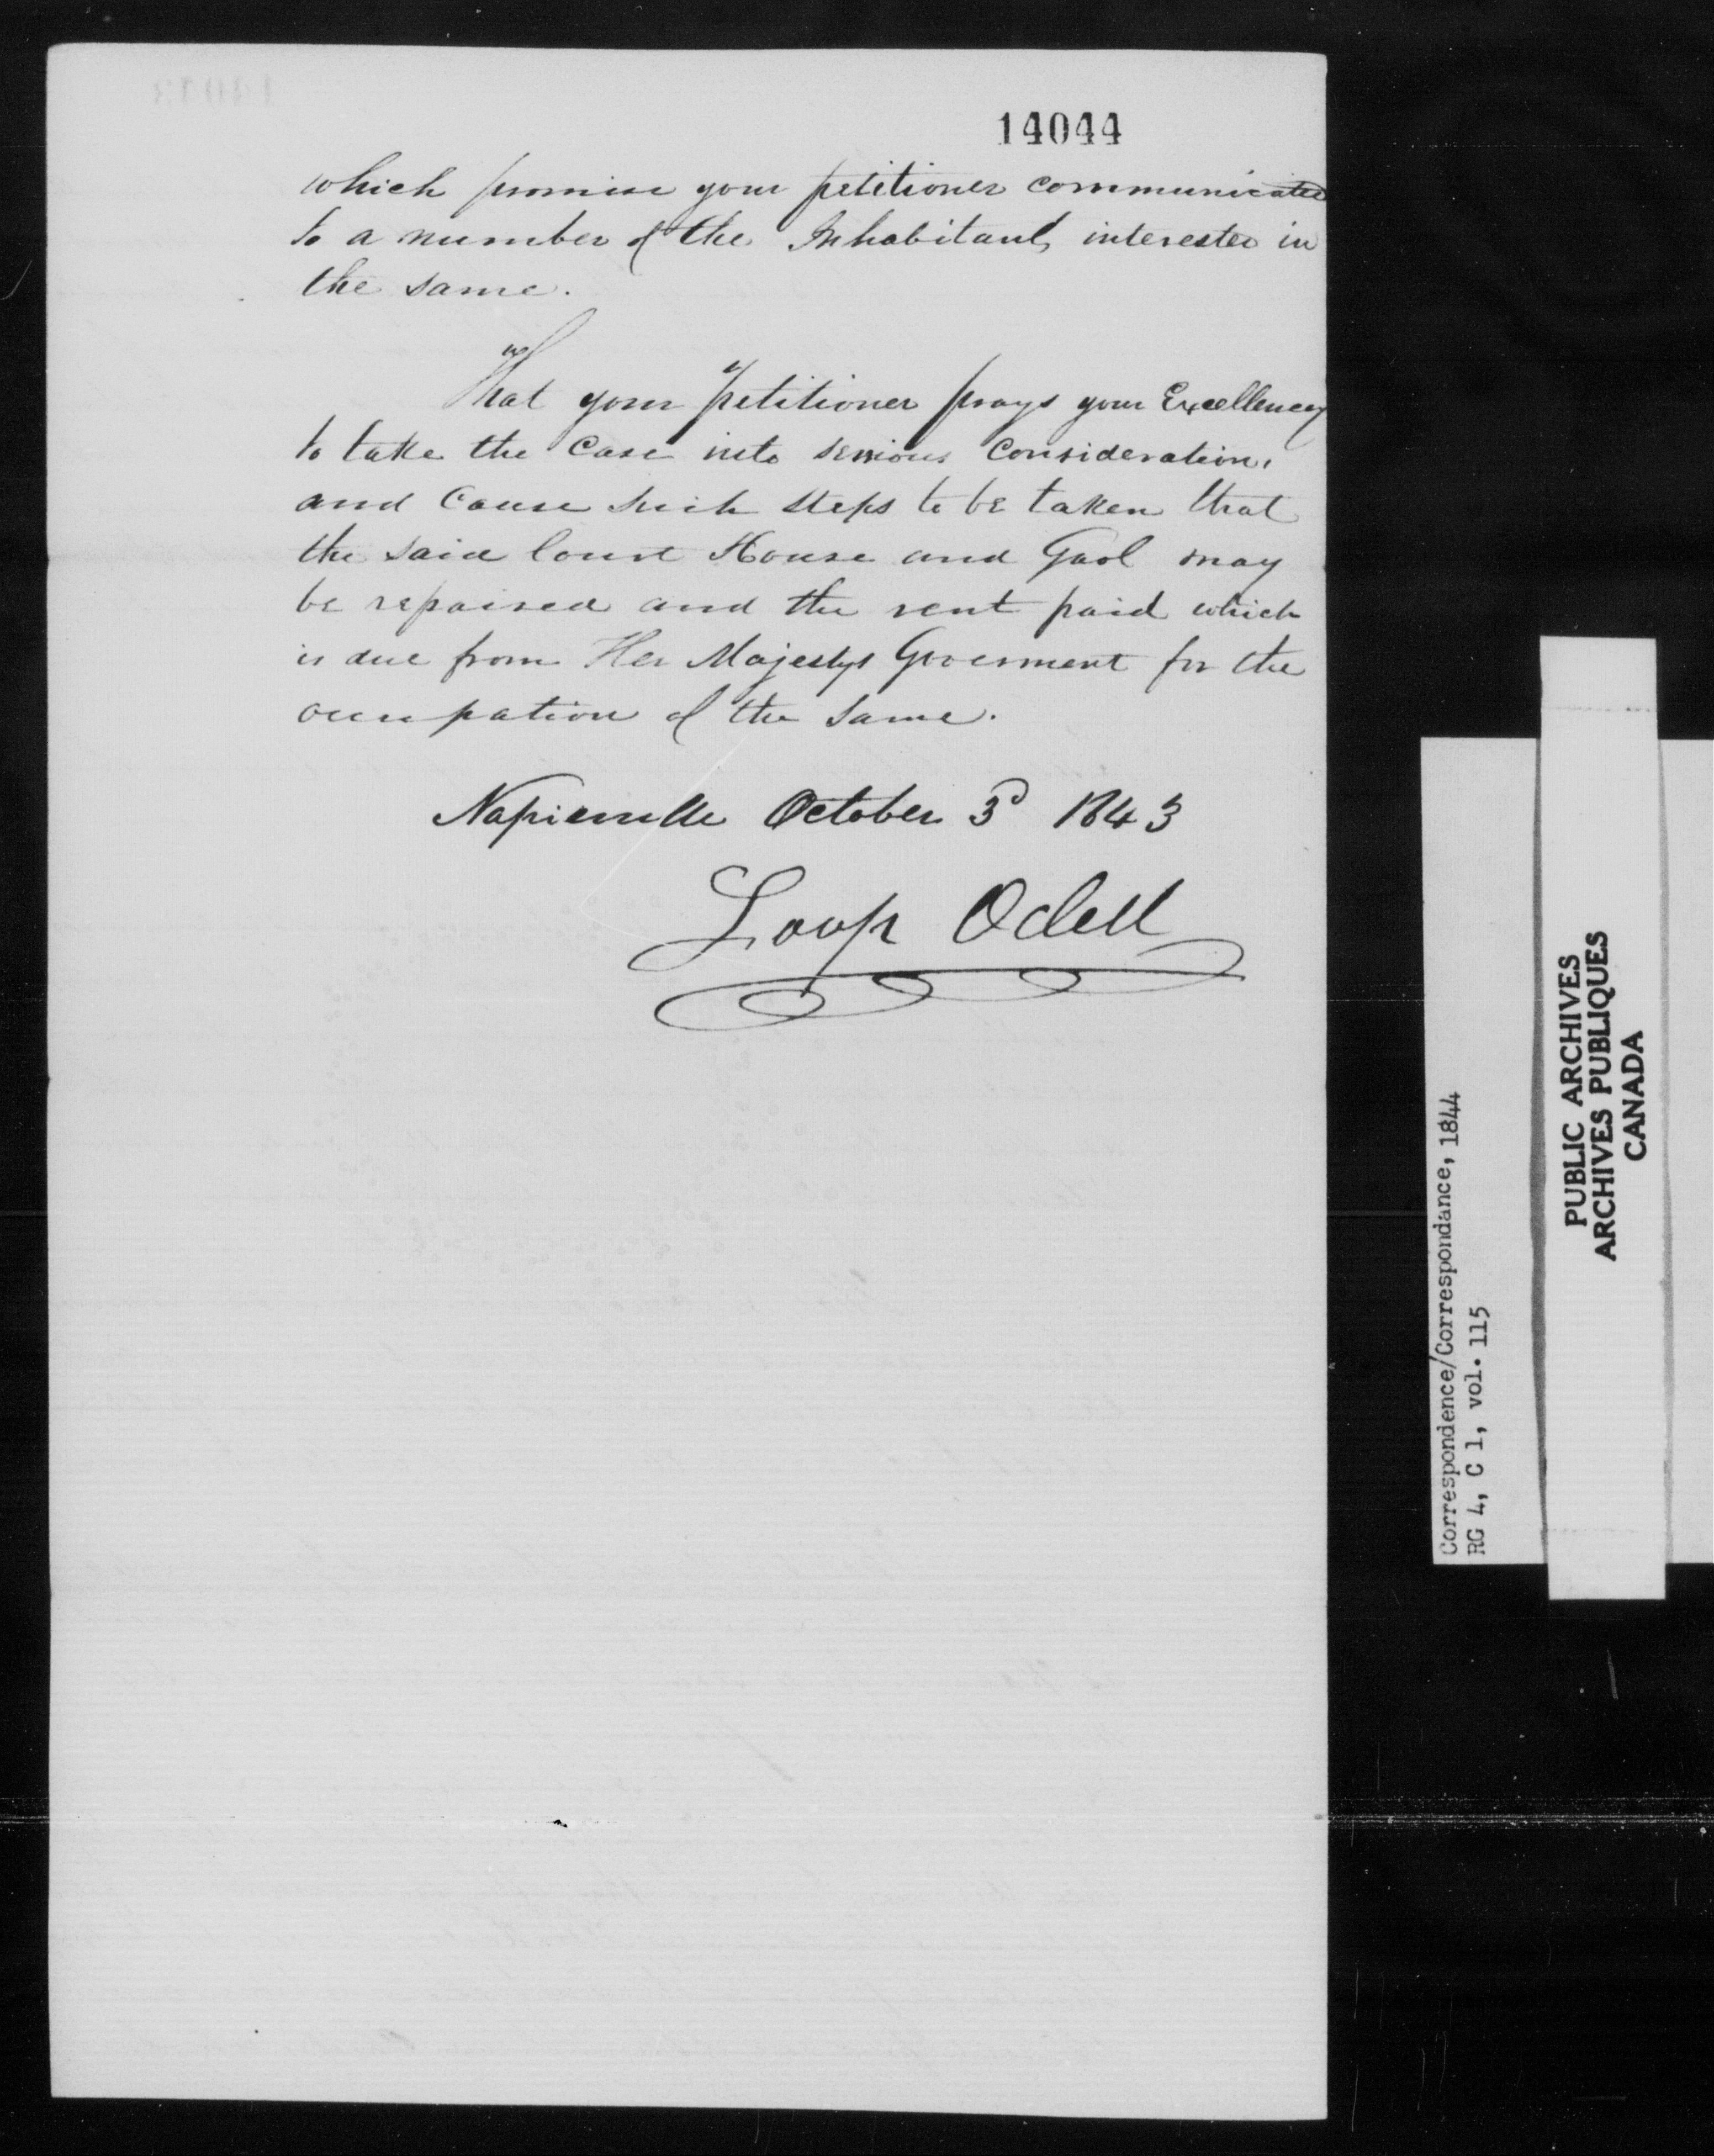 14044
which promise your petitioner communicated
to a number of the Inhabitants interested in
the same.
That your petitioner prays your Excellency
to take the Case into serious Consideration,
and Cause such steps to be taken that
the said Court House and Gaol may
be repaired and the rent paid which
is due from Her Majestys Goverment for the
occupation of the same.
Napierville October 3d 1843
Loop Odell
Correspondence/Correspondance, 1844
RG 4, C 1, vol. 115
PUBLIC ARCHIVES
ARCHIVES PUBLIQUES
CANADA